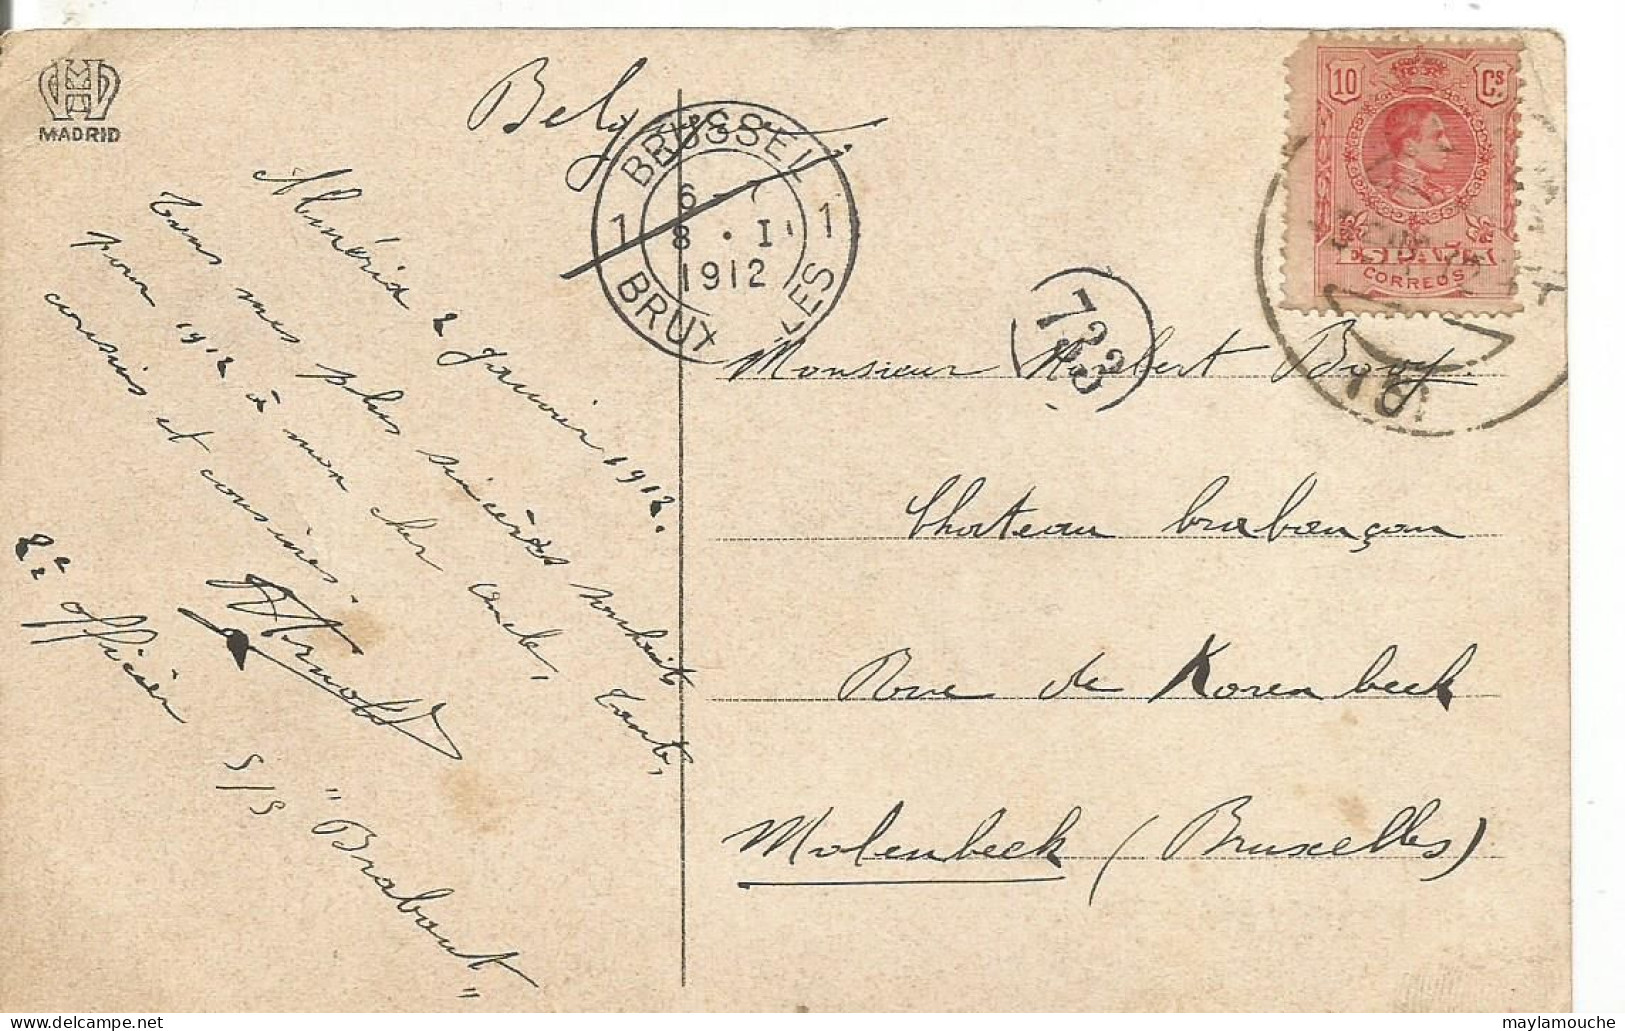 MADRID
Belgique
Alméria 2 Janvier 1912.
Tous mes plus sincères souhaits
pour 1912 à mon cher oncle, Tante,
cousins et cousines.
Arnold
2e officier
S/S "Brabant"
BRUSSEL 1
1
6
8 . I
1912
BRUXELLES
733
10 Cs.
ESPAÑA
CORREOS
Monsieur Humbert
Chateau brabançon
Rue de Korenbeek
Molenbeek (Bruxelles)
maylamouche